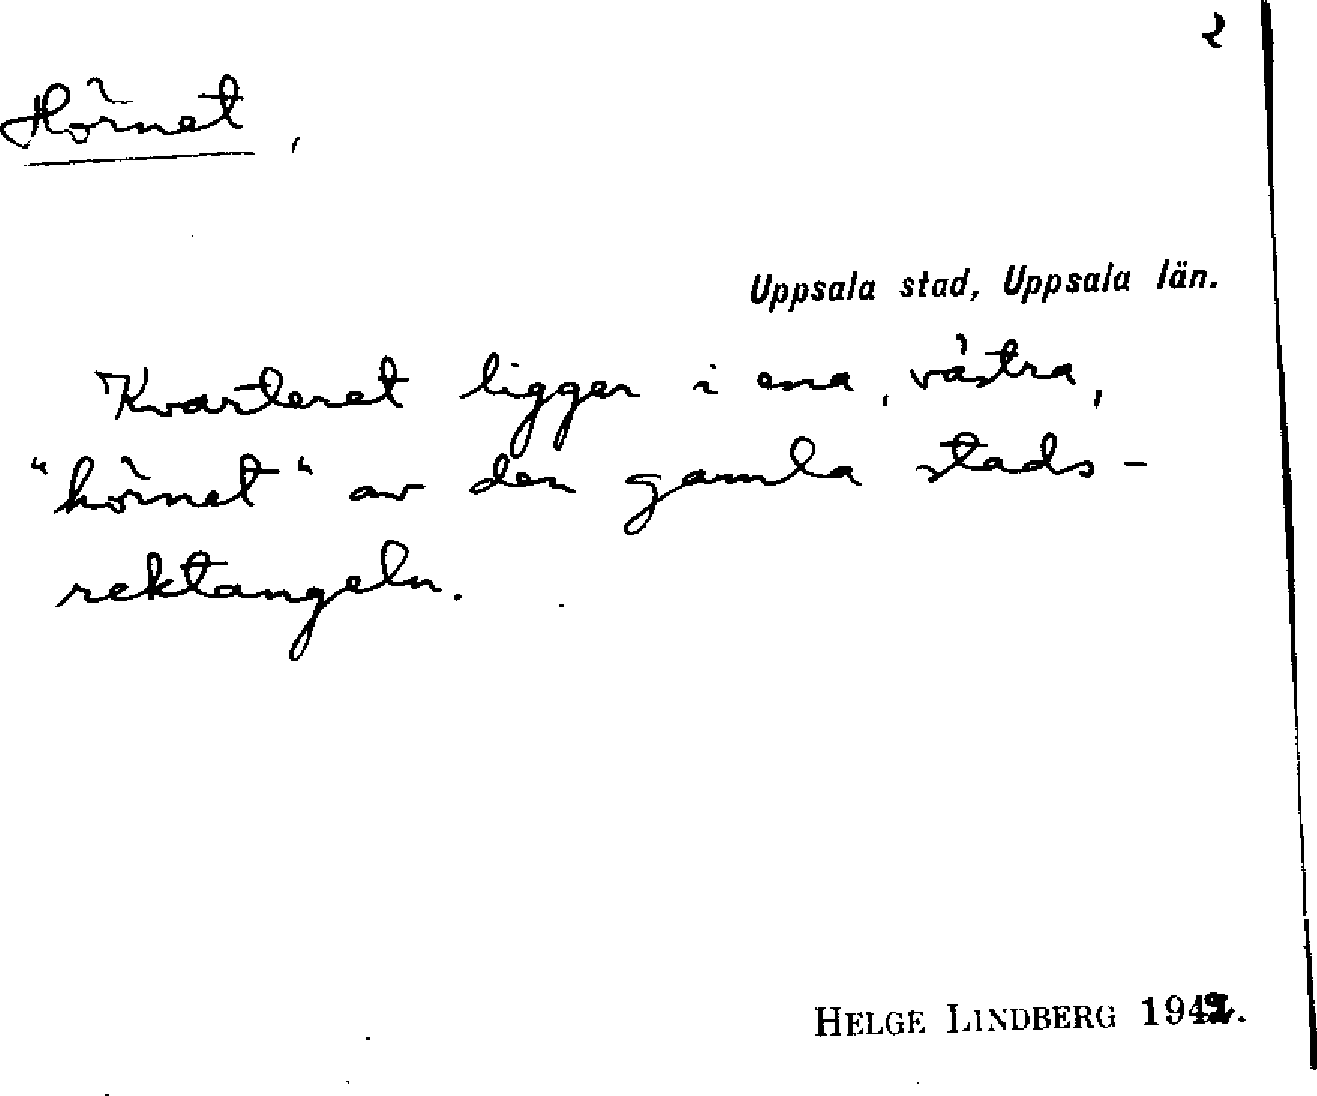 2
Hörnet,
Uppsala stad, Uppsala län.
Kvarteret ligger i ena, västra,
"hörnet" av den gamla stads-
rektangeln.
HELGE LINDBERG